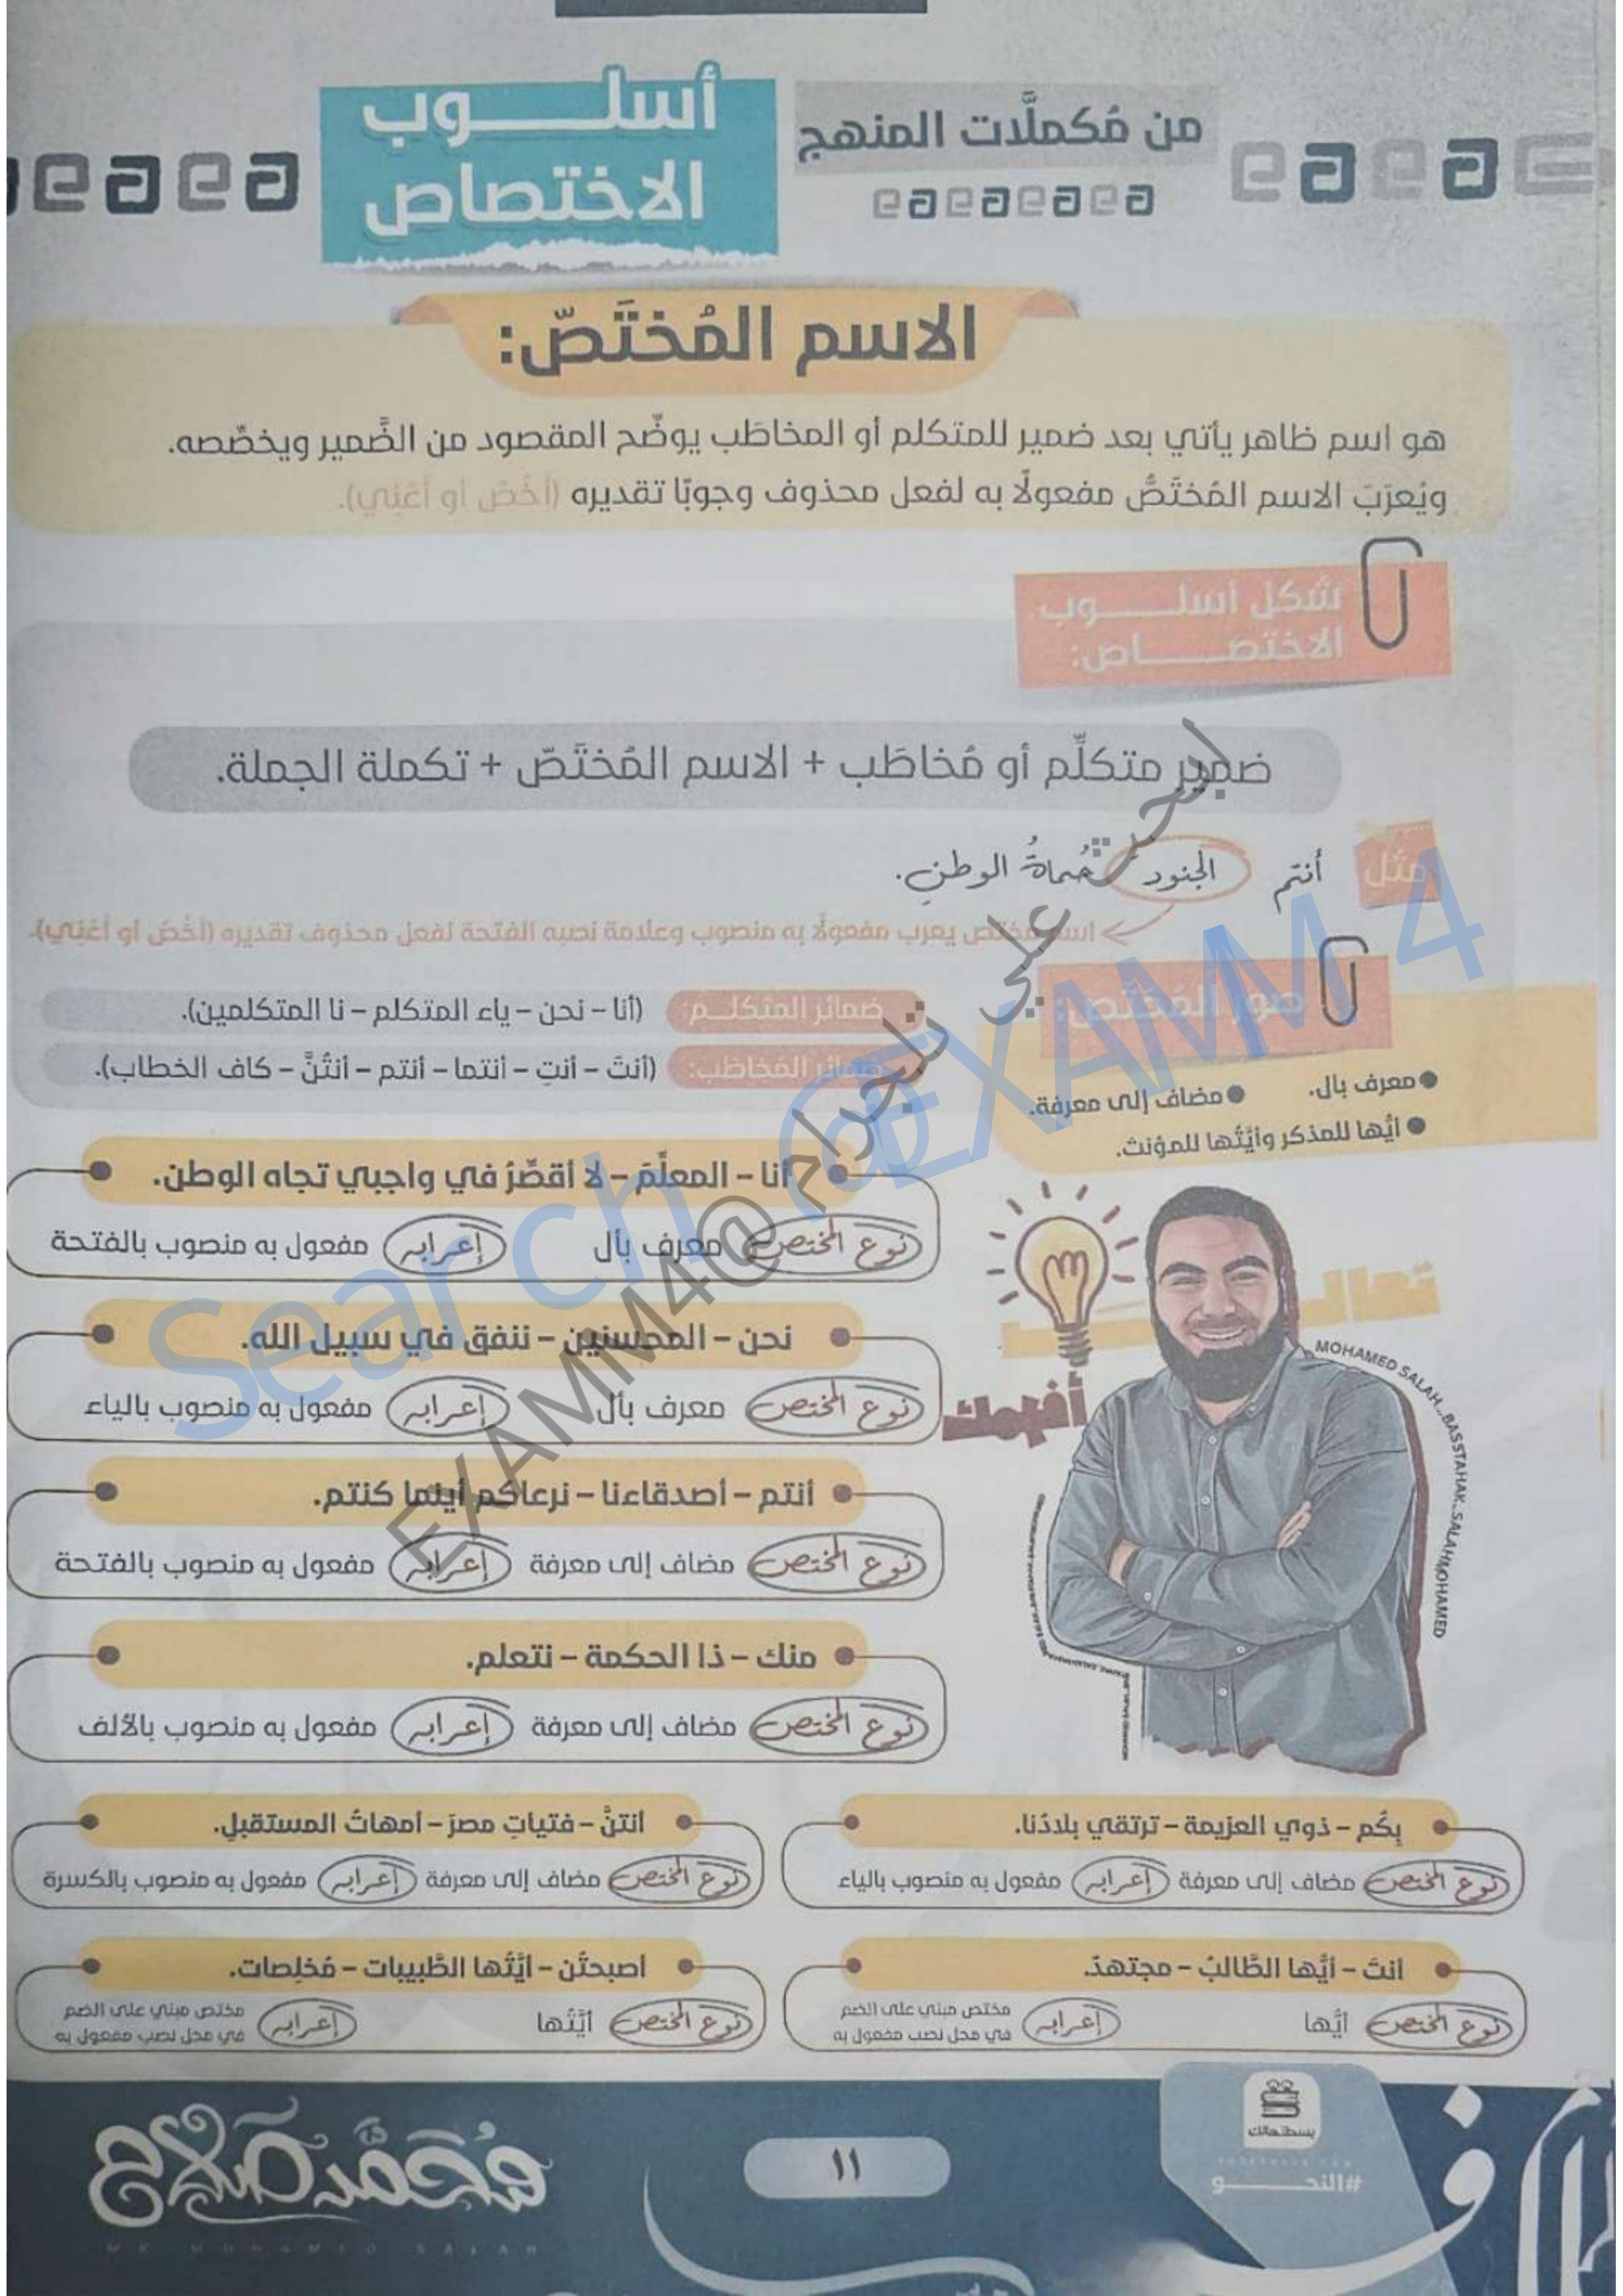 من مُكملَّات المنهج
أسلوب
الاختصاص
الاسم المُختَصّ:
هو اسم ظاهر يأتي بعد ضمير للمتكلم أو المخاطَب يوضِّح المقصود من الضَّمير ويخصِّصه.
ويُعرَبَ الاسم المُختَصُّ مفعولًا به لفعل محذوف وجوبًا تقديره (أَخُصّ أو أَعْنِي).
شكل أسلوب
الاختصاص:
ضمير متكلِّم أو مُخاطَب + الاسم المُختَصّ + تكملة الجملة.
مثل أنتم الجنودَ حُماةُ الوطنِ.
اسم مختص يعرب مفعولًا به منصوب وعلامة نصبه الفتحة لفعل محذوف تقديره (أَخُصّ أو أَعْنِي).
صور المُختَص:
معرف بال. مضاف إلى معرفة.
أيُّها للمذكر وأيَّتُها للمؤنث.
ضمائر المتكلم: (أنا – نحن – ياء المتكلم – نا المتكلمين).
ضمائر المُخاطَب: (أنتَ – أنتِ – أنتما – أنتم – أنتُنَّ – كاف الخطاب).
أنا – المعلِّمَ – لا أقصِّرُ في واجبي تجاه الوطن.
نوع المختص معرف بأل إعرابه مفعول به منصوب بالفتحة
نحن – المحسنين – ننفق في سبيل الله.
نوع المختص معرف بأل إعرابه مفعول به منصوب بالياء
أنتم – أصدقاءنا – نرعاكم أينما كنتم.
نوع المختص مضاف إلى معرفة إعرابه مفعول به منصوب بالفتحة
منك – ذا الحكمة – نتعلم.
نوع المختص مضاف إلى معرفة إعرابه مفعول به منصوب بالألف
تعالى
أفهمك
MOHAMED SALAH..BASSTAHAK..SALAHMOHAMED
بِكُم – ذوي العزيمة – ترتقي بلادُنا.
نوع المختص مضاف إلى معرفة إعرابه مفعول به منصوب بالياء
أنتنَّ – فتياتِ مصرَ – أمهاتُ المستقبلِ.
نوع المختص مضاف إلى معرفة إعرابه مفعول به منصوب بالكسرة
أنتَ – أيُّها الطَّالبُ – مجتهدٌ.
نوع المختص أيُّها إعرابه مختص مبني على الضم
في محل نصب مفعول به
أصبحتُن – أيَّتُها الطَّبيبات – مُخلِصات.
نوع المختص أيَّتُها إعرابه مختص مبني على الضم
في محل نصب مفعول به
بسطتهالك
#النحو
١١
مُحَمَّد صَلاح
MR MOHAMED SALAH
Search @EXAMM4
ابحث علي تلجرام @EXAMM4